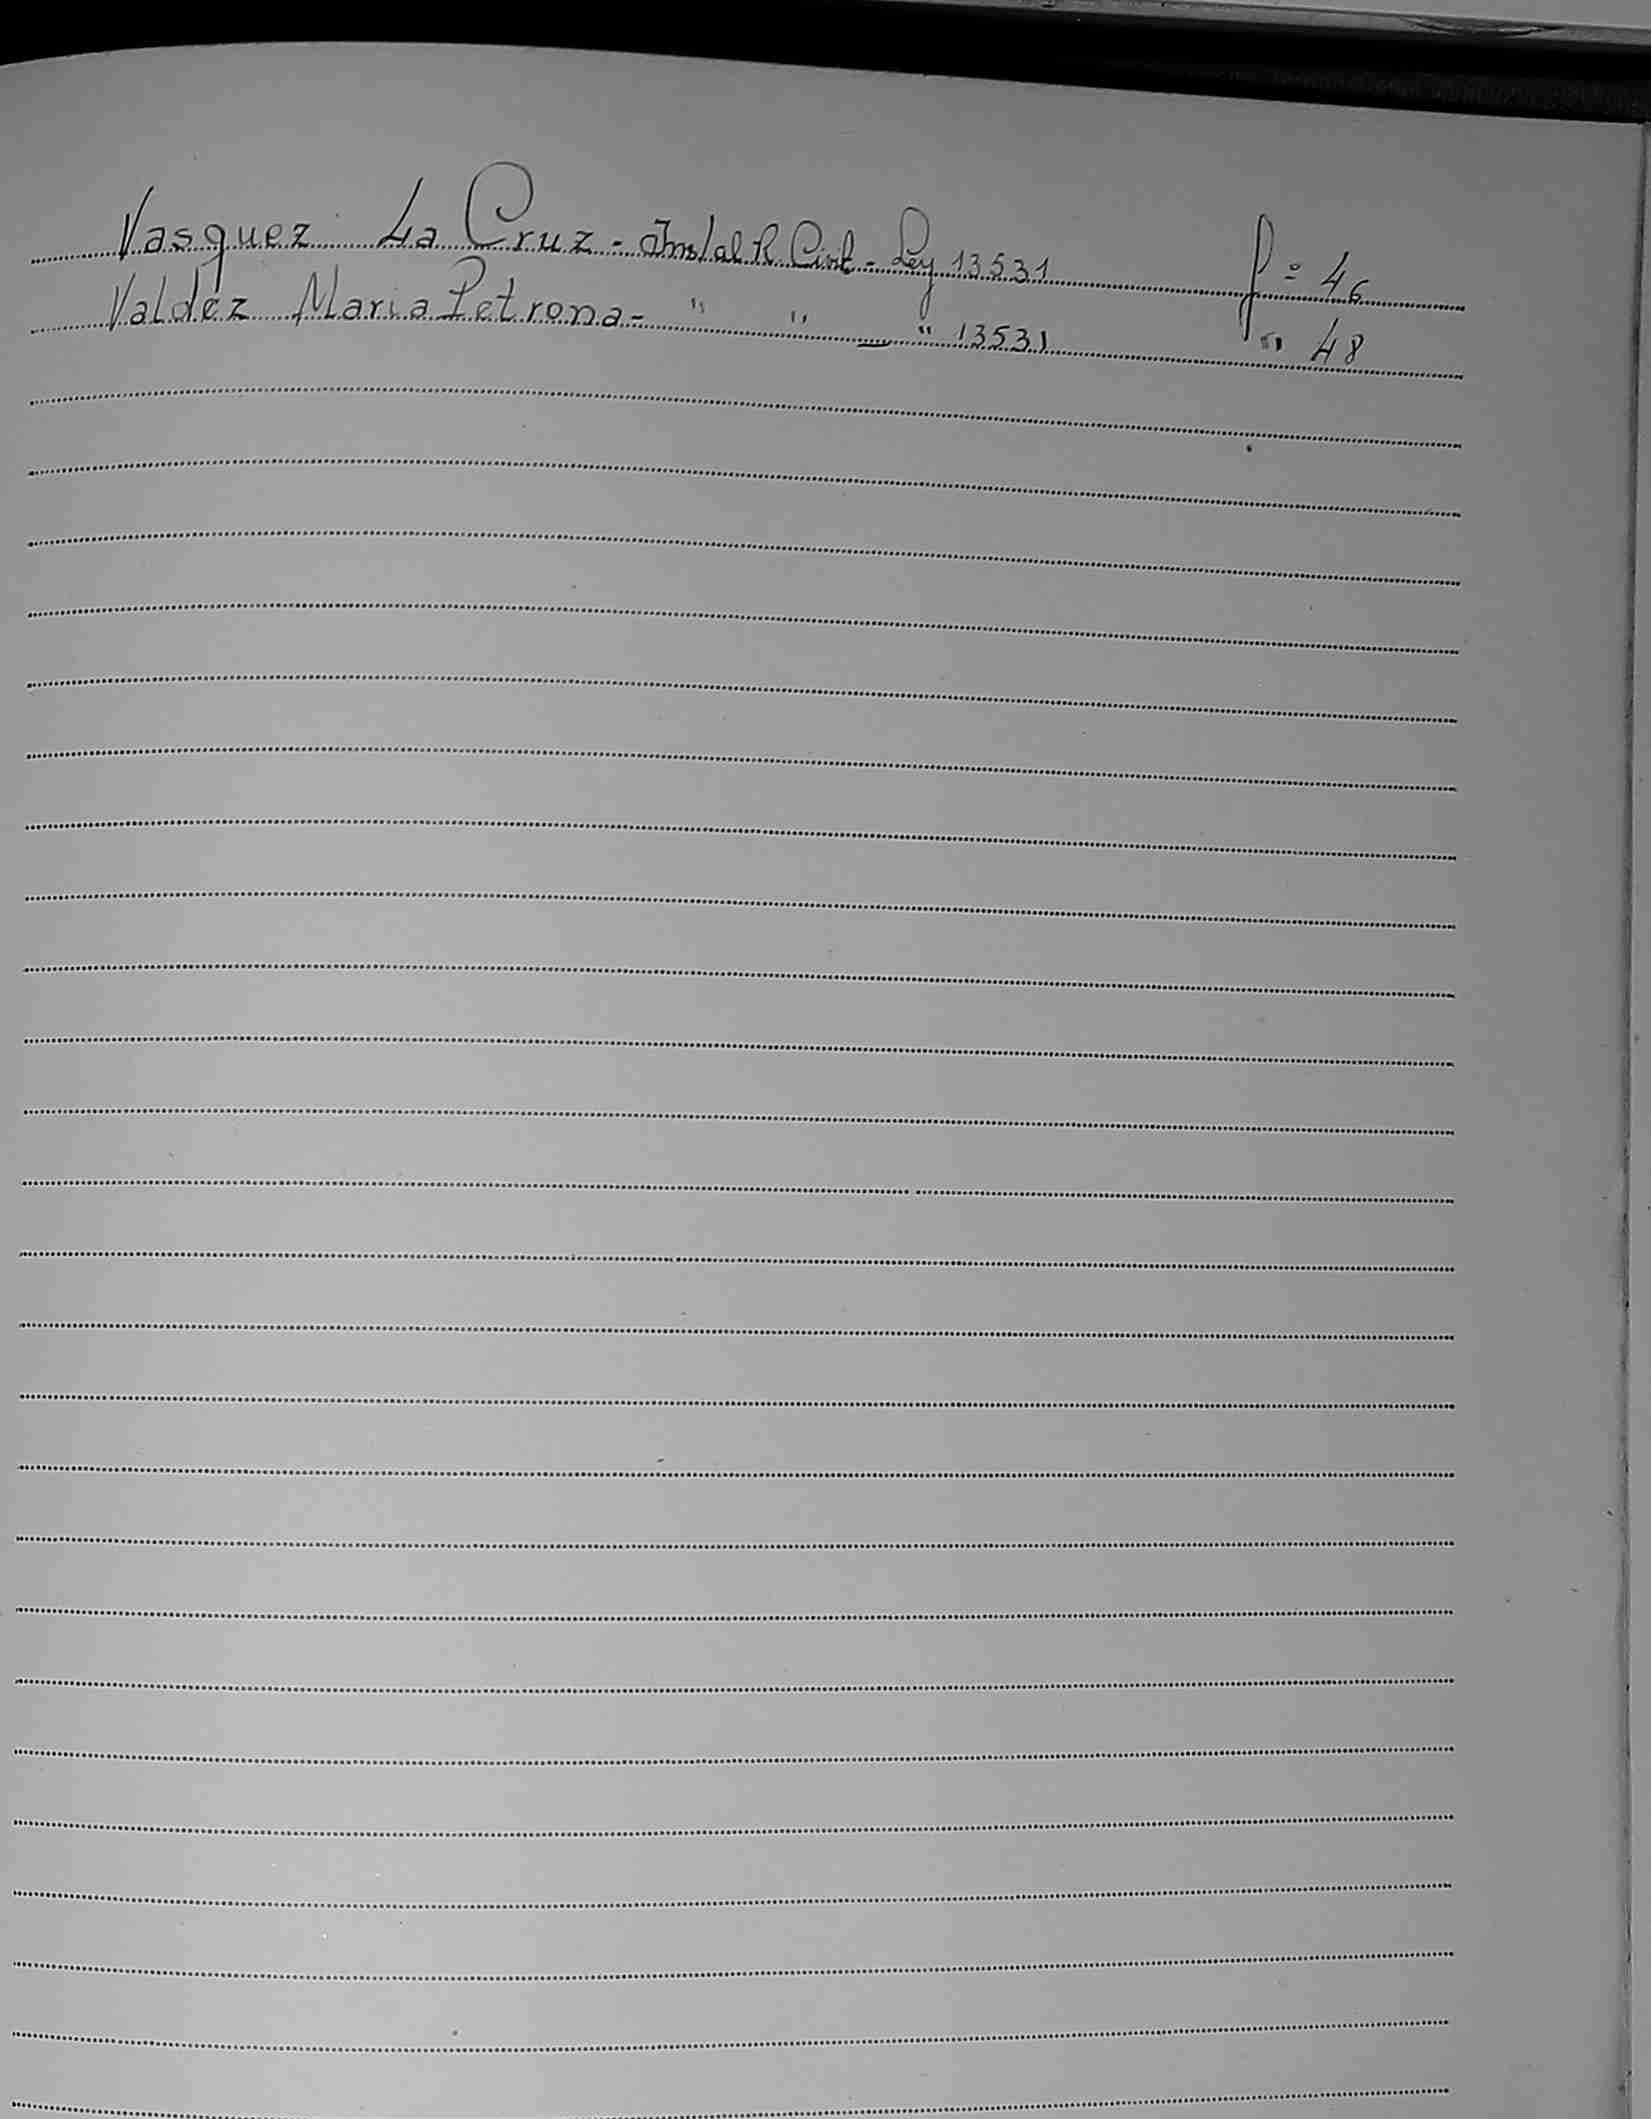 Vasquez La Cruz - Ins/al R Civil - Ley 13531 f= 46
Valdéz Maria Petrona - " " - " 13531 " 48